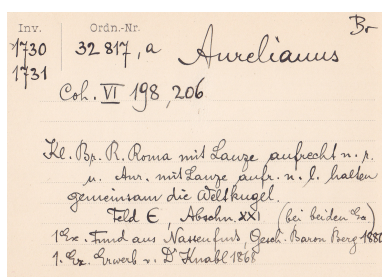 Inv. Ordn.-Nr. Br
1730 32 817, a Aurelianus
1731
Coh. VI 198, 206
Kl. Br. R. Roma mit Lanze aufrecht n. r.
u. Aur. mit Lanze aufr. n. l. halten
gemeinsam die Weltkugel.
Feld Є, Abschn. XXI (bei beiden Ex)
1 Ex. Fund aus Nassenfuß, Gesch. Baron Berg 1886
1. Ex. Erwerb v. Dr Knabl 1868